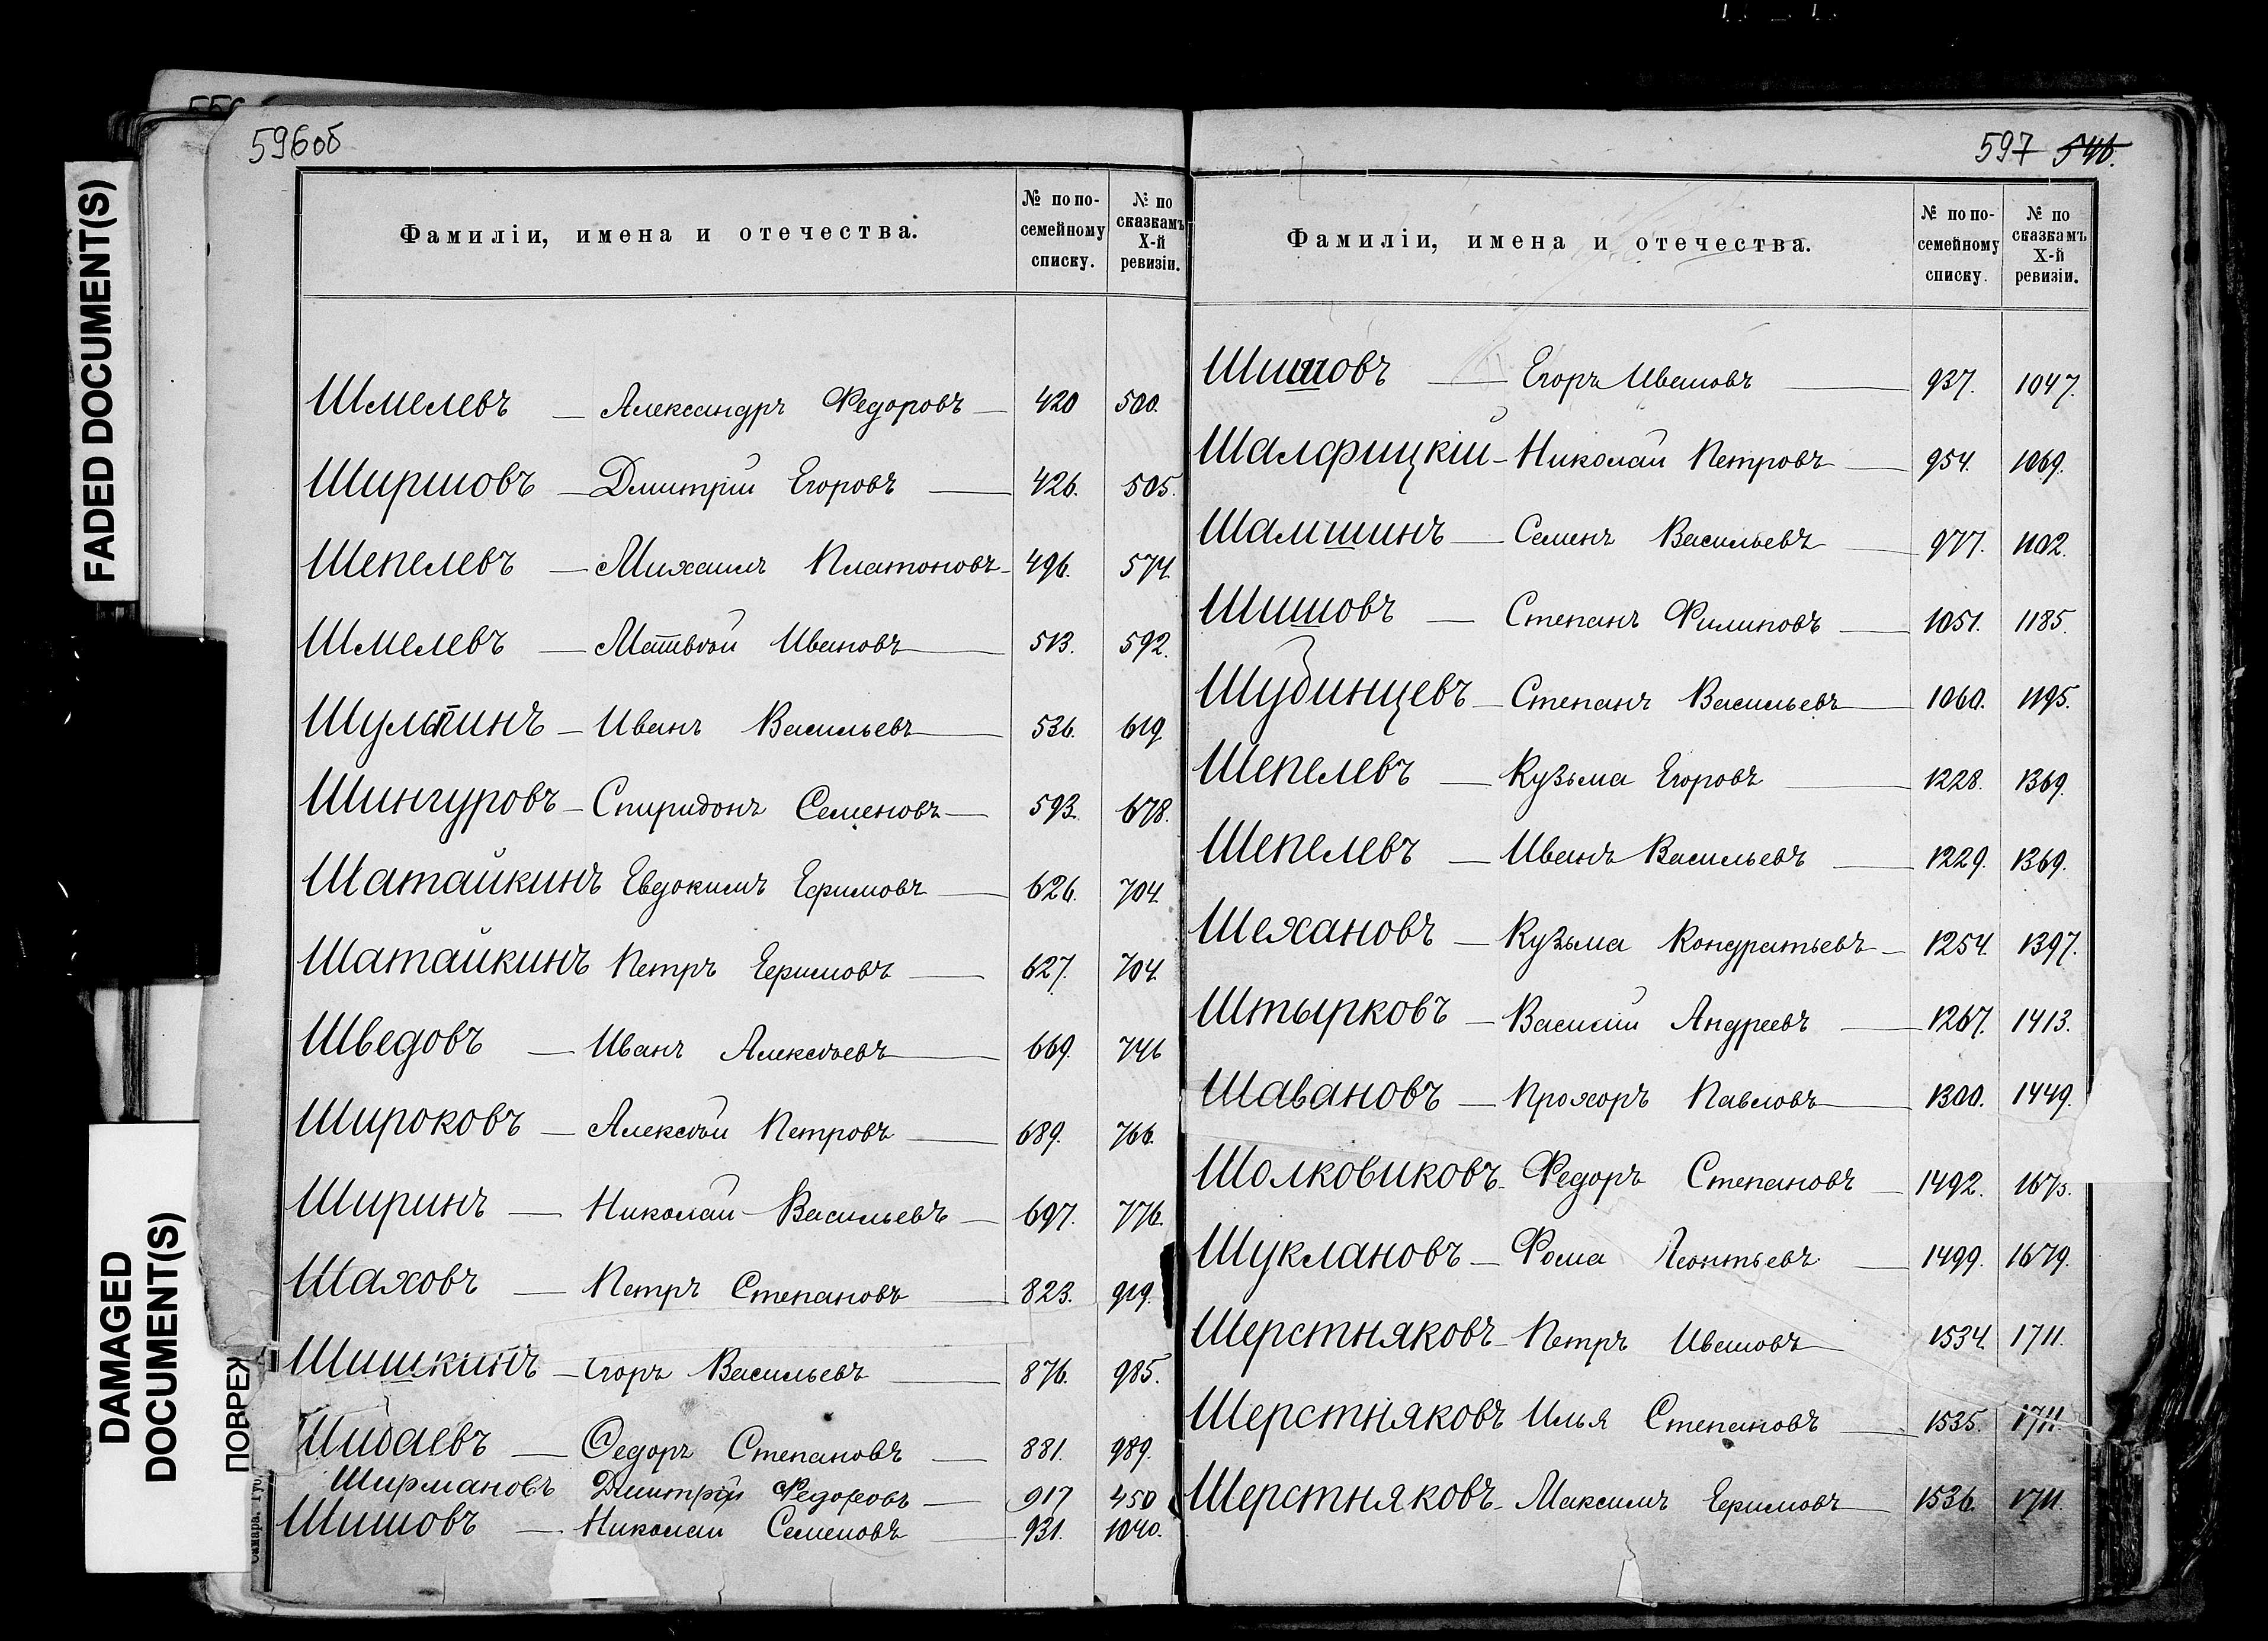 FADED DOCUMENT(S)
DAMAGED
DOCUMENT(S)
ПОВРЕЖ
596об
Фамиліи, имена и отечества.
№ по по-
семейному
списку.
№ по
сказкамъ
X-й
ревизіи.
Шмелевъ — Александръ Федоровъ — 420 500.
Ширшовъ — Дмитрій Егоровъ — 426. 505.
Шепелевъ — Михаилъ Платоновъ — 496. 574.
Шмелевъ — Матвѣй Ивановъ — 513. 592.
Шульпинъ — Иванъ Васильевъ — 536. 619.
Шингуровъ — Спиридонъ Семеновъ — 593. 678.
Шатайкинъ Евдокимъ Ефимовъ — 626. 704.
Шатайкинъ Петръ Ефимовъ — 627. 704.
Шведовъ — Иванъ Алексѣевъ — 669. 746
Широковъ — Алексѣй Петровъ — 689. 766.
Ширинъ — Николай Васильевъ — 697. 776.
Шаховъ — Петръ Степановъ — 823. 919.
Шишкинъ — Егоръ Васильевъ — 876. 985.
Шибаевъ — Федоръ Степановъ — 881. 989.
Ширмановъ Дмитрій Федоровъ — 917 450
Шишовъ — Николай Семеновъ — 931. 1040.
597 546.
Фамиліи, имена и отечества.
№ по по-
семейному
списку.
№ по
сказкамъ
X-й
ревизіи.
Шишовъ — Егоръ Ивановъ — 937. 1047.
Шалфицкій — Николай Петровъ — 954. 1069.
Шамшинъ — Семенъ Васильевъ — 977. 1102.
Шишовъ — Степанъ Филиповъ — 1051. 1185.
Шубинцевъ — Степанъ Васильевъ — 1060. 1195.
Шепелевъ — Кузьма Егоровъ — 1228. 1369.
Шепелевъ — Иванъ Васильевъ — 1229. 1369.
Шехановъ — Кузьма Кондратьевъ — 1254. 1397.
Штырковъ — Василій Андреевъ — 1267. 1413.
Шавановъ — Прохоръ Павловъ — 1300. 1449.
Шолковиковъ Федоръ Степановъ — 1492. 1673.
Шуклановъ — Фома Леонтьевъ — 1499. 1679.
Шерстняковъ — Петръ Ивановъ — 1534. 1711.
Шерстняковъ Илья Степановъ — 1535. 1711.
Шерстняковъ — Максимъ Ефимовъ — 1536. 1711.